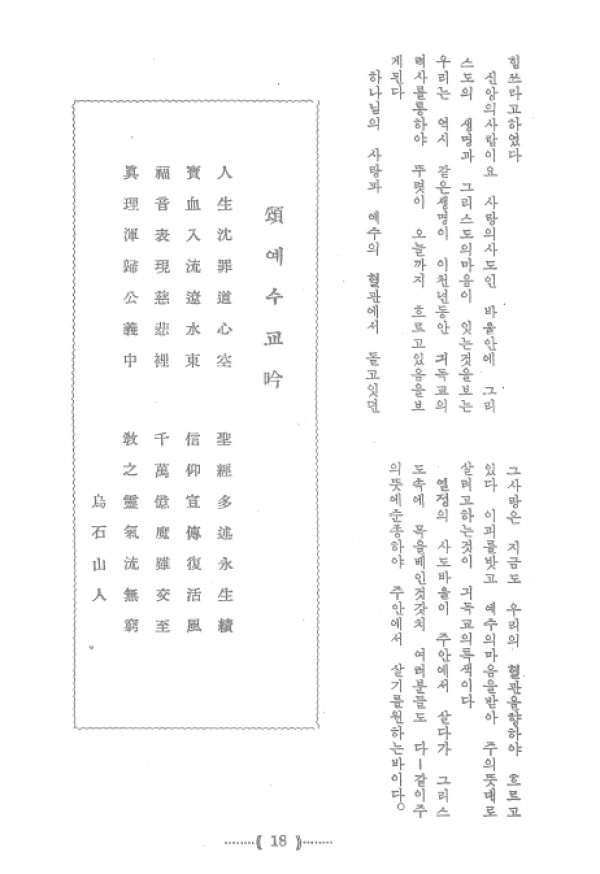 힘쓰라고하였다
신앙의사람이요 사랑의사도인 바울안에 그리
스도의 생명과 그리스도의마음이 잇는것을보는
우리는 역시 같은생명이 이천년동안 긔독교의
력사를통하야 뚜렷이 오늘까지 흐르고있음을보
게된다
하나님의 사랑과 예수의 혈관에서 돌고잇던
그사랑은 지금도 우리의 혈관을향하야 흐르고
있다 이피를밧고 예수의마음을받아 주의뜻대로
살려고하는것이 긔독교의특색이다
열정의 사도바울이 주안에서 살다가 그리스
도속에 목을베인것갓치 여러분들도 다ー같이주
의뜻에순종하야 주안에서 살기를원하는바이다。
頌예수교吟
人生沈罪道心空 聖經多述永生績
寶血入流遼水東 信仰宣傳復活風
福音表現慈悲裡 千萬億魔雖交至
眞理渾歸公義中 敎之靈氣流無窮
烏石山人。
18